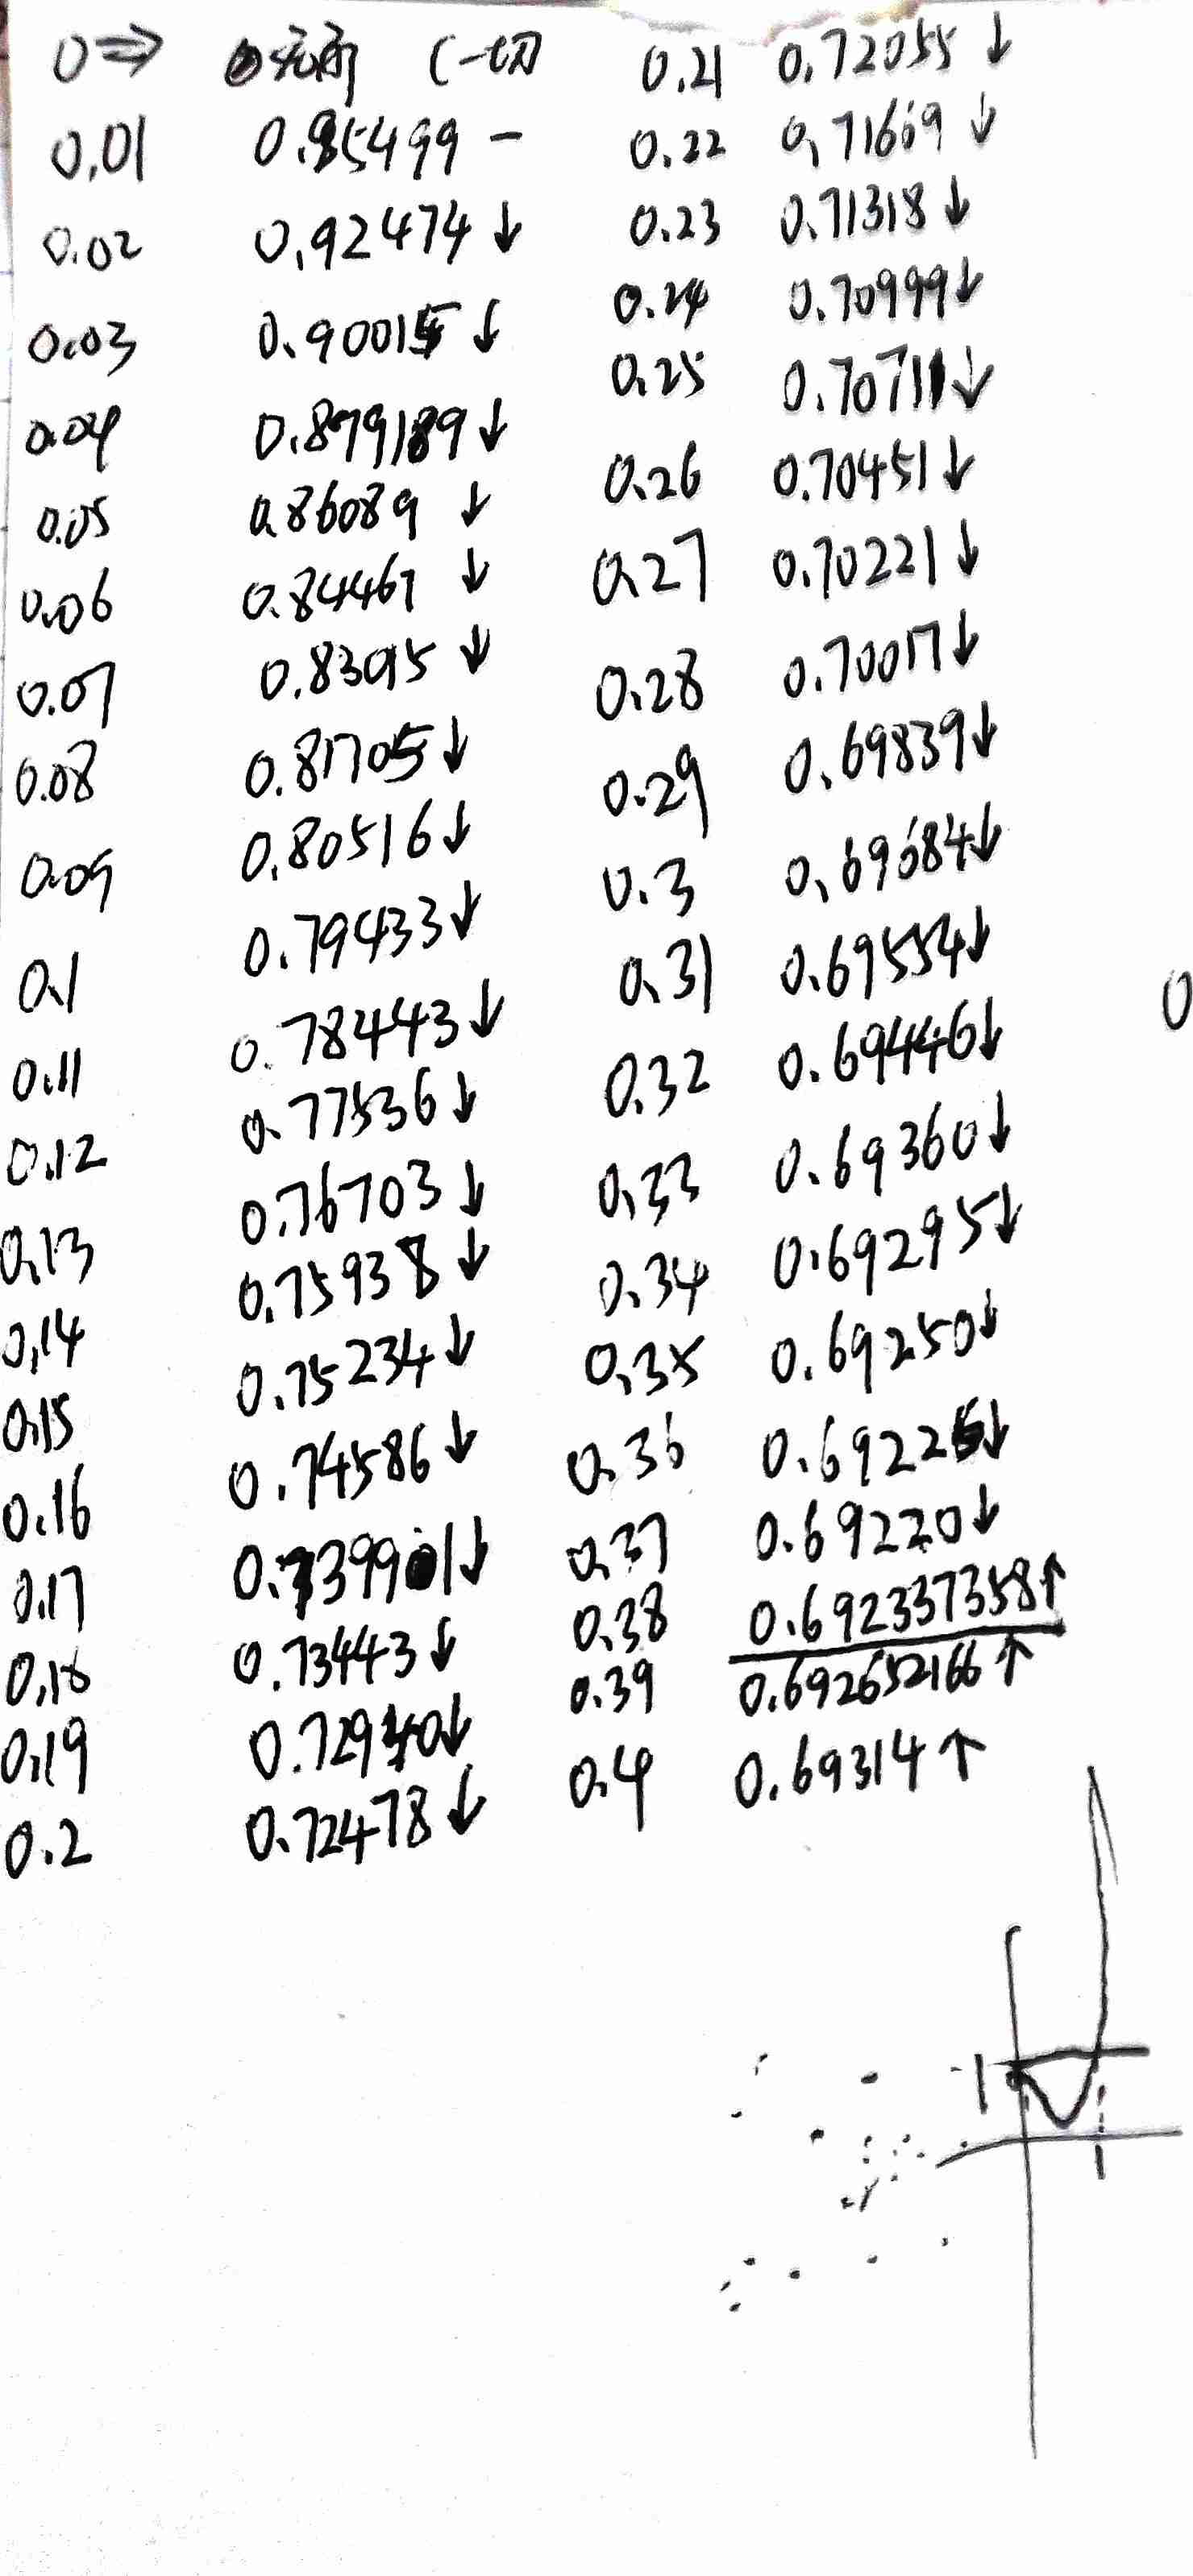 0⇒ (一切
0.01 0.95499 -
0.02 0.92474↓
0.03 0.90015↓
0.04 0.879189↓
0.05 0.86089↓
0.06 0.84467↓
0.07 0.83015↓
0.08 0.81705↓
0.09 0.80516↓
0.1 0.79433↓
0.11 0.78443↓
0.12 0.77536↓
0.13 0.76703↓
0.14 0.75938↓
0.15 0.75234↓
0.16 0.74586↓
0.17 0.73990↓
0.18 0.73443↓
0.19 0.72940↓
0.2 0.72478↓
0.21 0.72055↓
0.22 0.71669↓
0.23 0.71318↓
0.24 0.70999↓
0.25 0.70711↓
0.26 0.70451↓
0.27 0.70221↓
0.28 0.70017↓
0.29 0.69839↓
0.3 0.69684↓
0.31 0.69554↓
0.32 0.69446↓
0.33 0.69360↓
0.34 0.69295↓
0.35 0.69250↓
0.36 0.69226↓
0.37 0.69220↓
0.38 0.692337358↑
0.39 0.692652166↑
0.4 0.69314↑
0
1
1